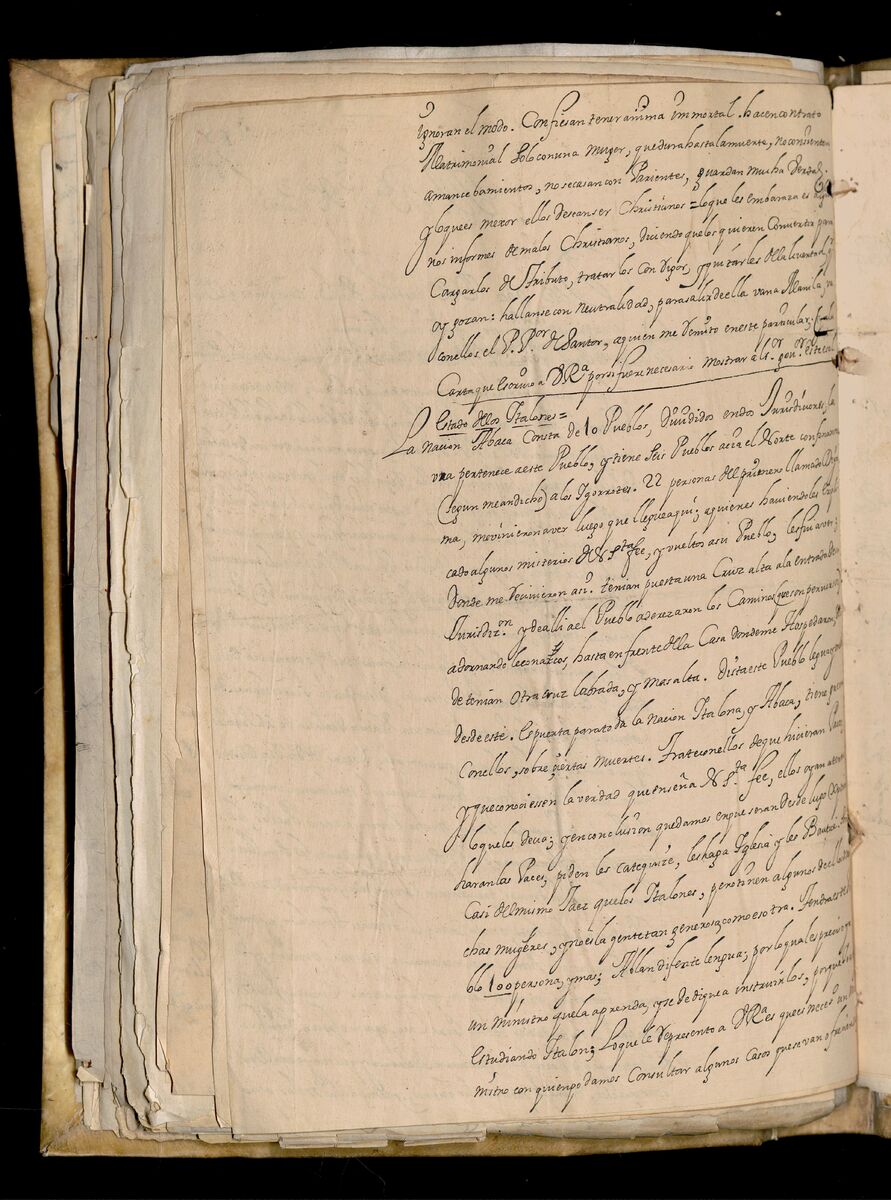 ignoran el modo. Confiesan tener anima immortal. hacen contrato
Matrimonial solo con una muger, que dura hasta la muerte, no consienten
amancebamientos, no se casan con Parientes, guardan mucha
y lo que es mexor ellos desean ser Christianos = lo que les embaraza es
nos informes de malos Christianos, diciendo que los quieren Convertir para
Cargarlos de Tributo, tratarlos con rigor, y quitarles de la livertad, q.
oy gozan: hallanse con Neutralidad, para salir de ella van a Manila,
con ellos el P. P.or de Santor, a quien me remito en este particular;
Carta que escrivo a V Ra. por si fuere necesario mostrar al s.or gov.or
Estado de los Italones =
La Nacion Abaca Consta de 10 Pueblos, divididos en dos Jurisdiciones, la
una pertenece a este Pueblo, y tiene seis Pueblos acia el Norte
(segun me an dicho) a los Igorrotes. 22 personas del primero llamado
ma, me vinieron a ver luego que llegue aqui; a quienes haviendoles
cado algunos misterios de N. S.ta fee, y vueltos a su Pueblo, les fui a ver;
Donde me recivieron asi. tenian puesta una Cruz alta a la entrada de
Jurisdiz.on y de alli a el Pueblo aderezaron los Caminos
adornandoles con arcos, hasta en frente de la Casa donde me Hospedaron,
de tenian otra cruz labrada, y mas alta. Dista este Pueblo legua y
desde este. Es puerta para toda la Nacion Italona, y Abaca, tiene
Con ellos, sobre ciertas muertes. Trate con ellos de que hicieran Paces
y que conociessen la verdad que enseña N. S.ta fee, ellos oyan
lo que les decia; y en conclusion quedamos en que seran desde luego
haran las Paces; piden les catequize, les haga Iglesia y les Bautize.
Casi del mismo Jaez que los Italones, pero tienen algunos de ellos
chas mugeres, y no es la gente tan generosa como esotra. Tendra este
blo 100 persona, y mas; Ablan diferente lengua; por lo qual es preciso
un Ministro que la aprenda, y se dedique a instruirlos, porque
Estudiando Italon; Lo que le represento a V Ra es que es neces.o un
nistro con quien podamos Consultar algunos Casos pues se van